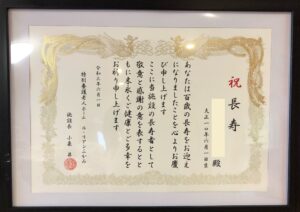 祝 長寿
殿
大正一〇年六月一日生
あなたは百歳の長寿をお迎え
になりましたことを心よりお慶
び申し上げます
ここに当施設の長寿者として
敬意と感謝の意を表するとと
もに末永くご健康とご多幸を
お祈り申し上げます
令和三年六月一日
特別養護老人ホーム
施設長 小泉